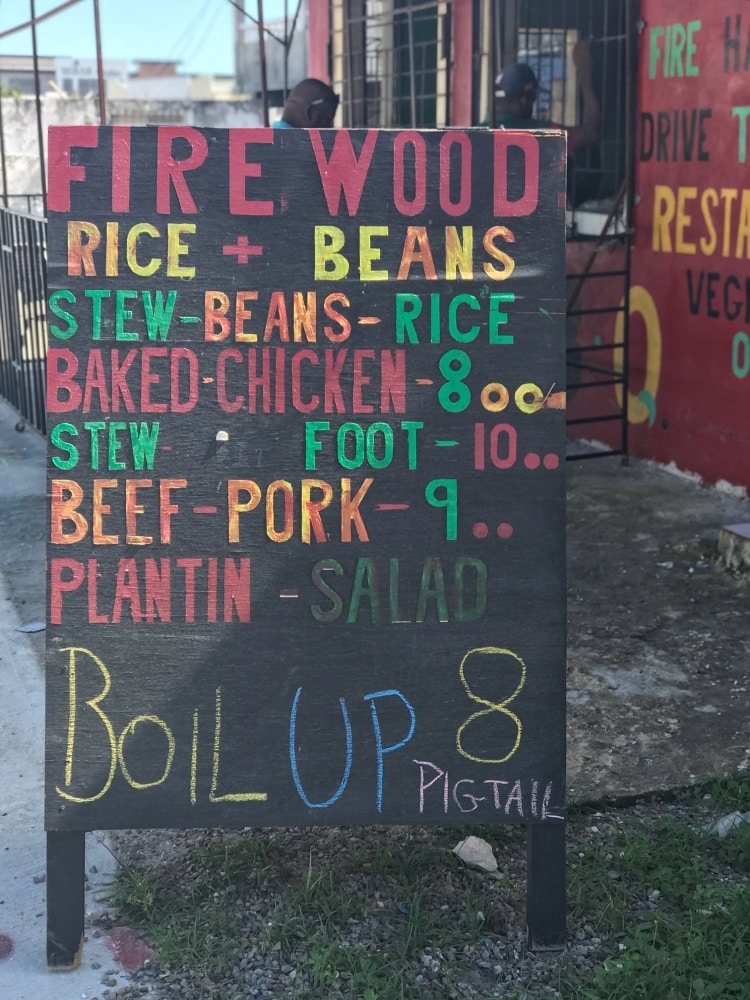 FIRE WOOD
RICE + BEANS
STEW-BEANS-RICE
BAKED-CHICKEN-8 00
STEW- FOOT-10..
BEEF-PORK-9..
PLANTIN - SALAD
BOIL UP 8
PIGTAIL
FIRE
DRIVE